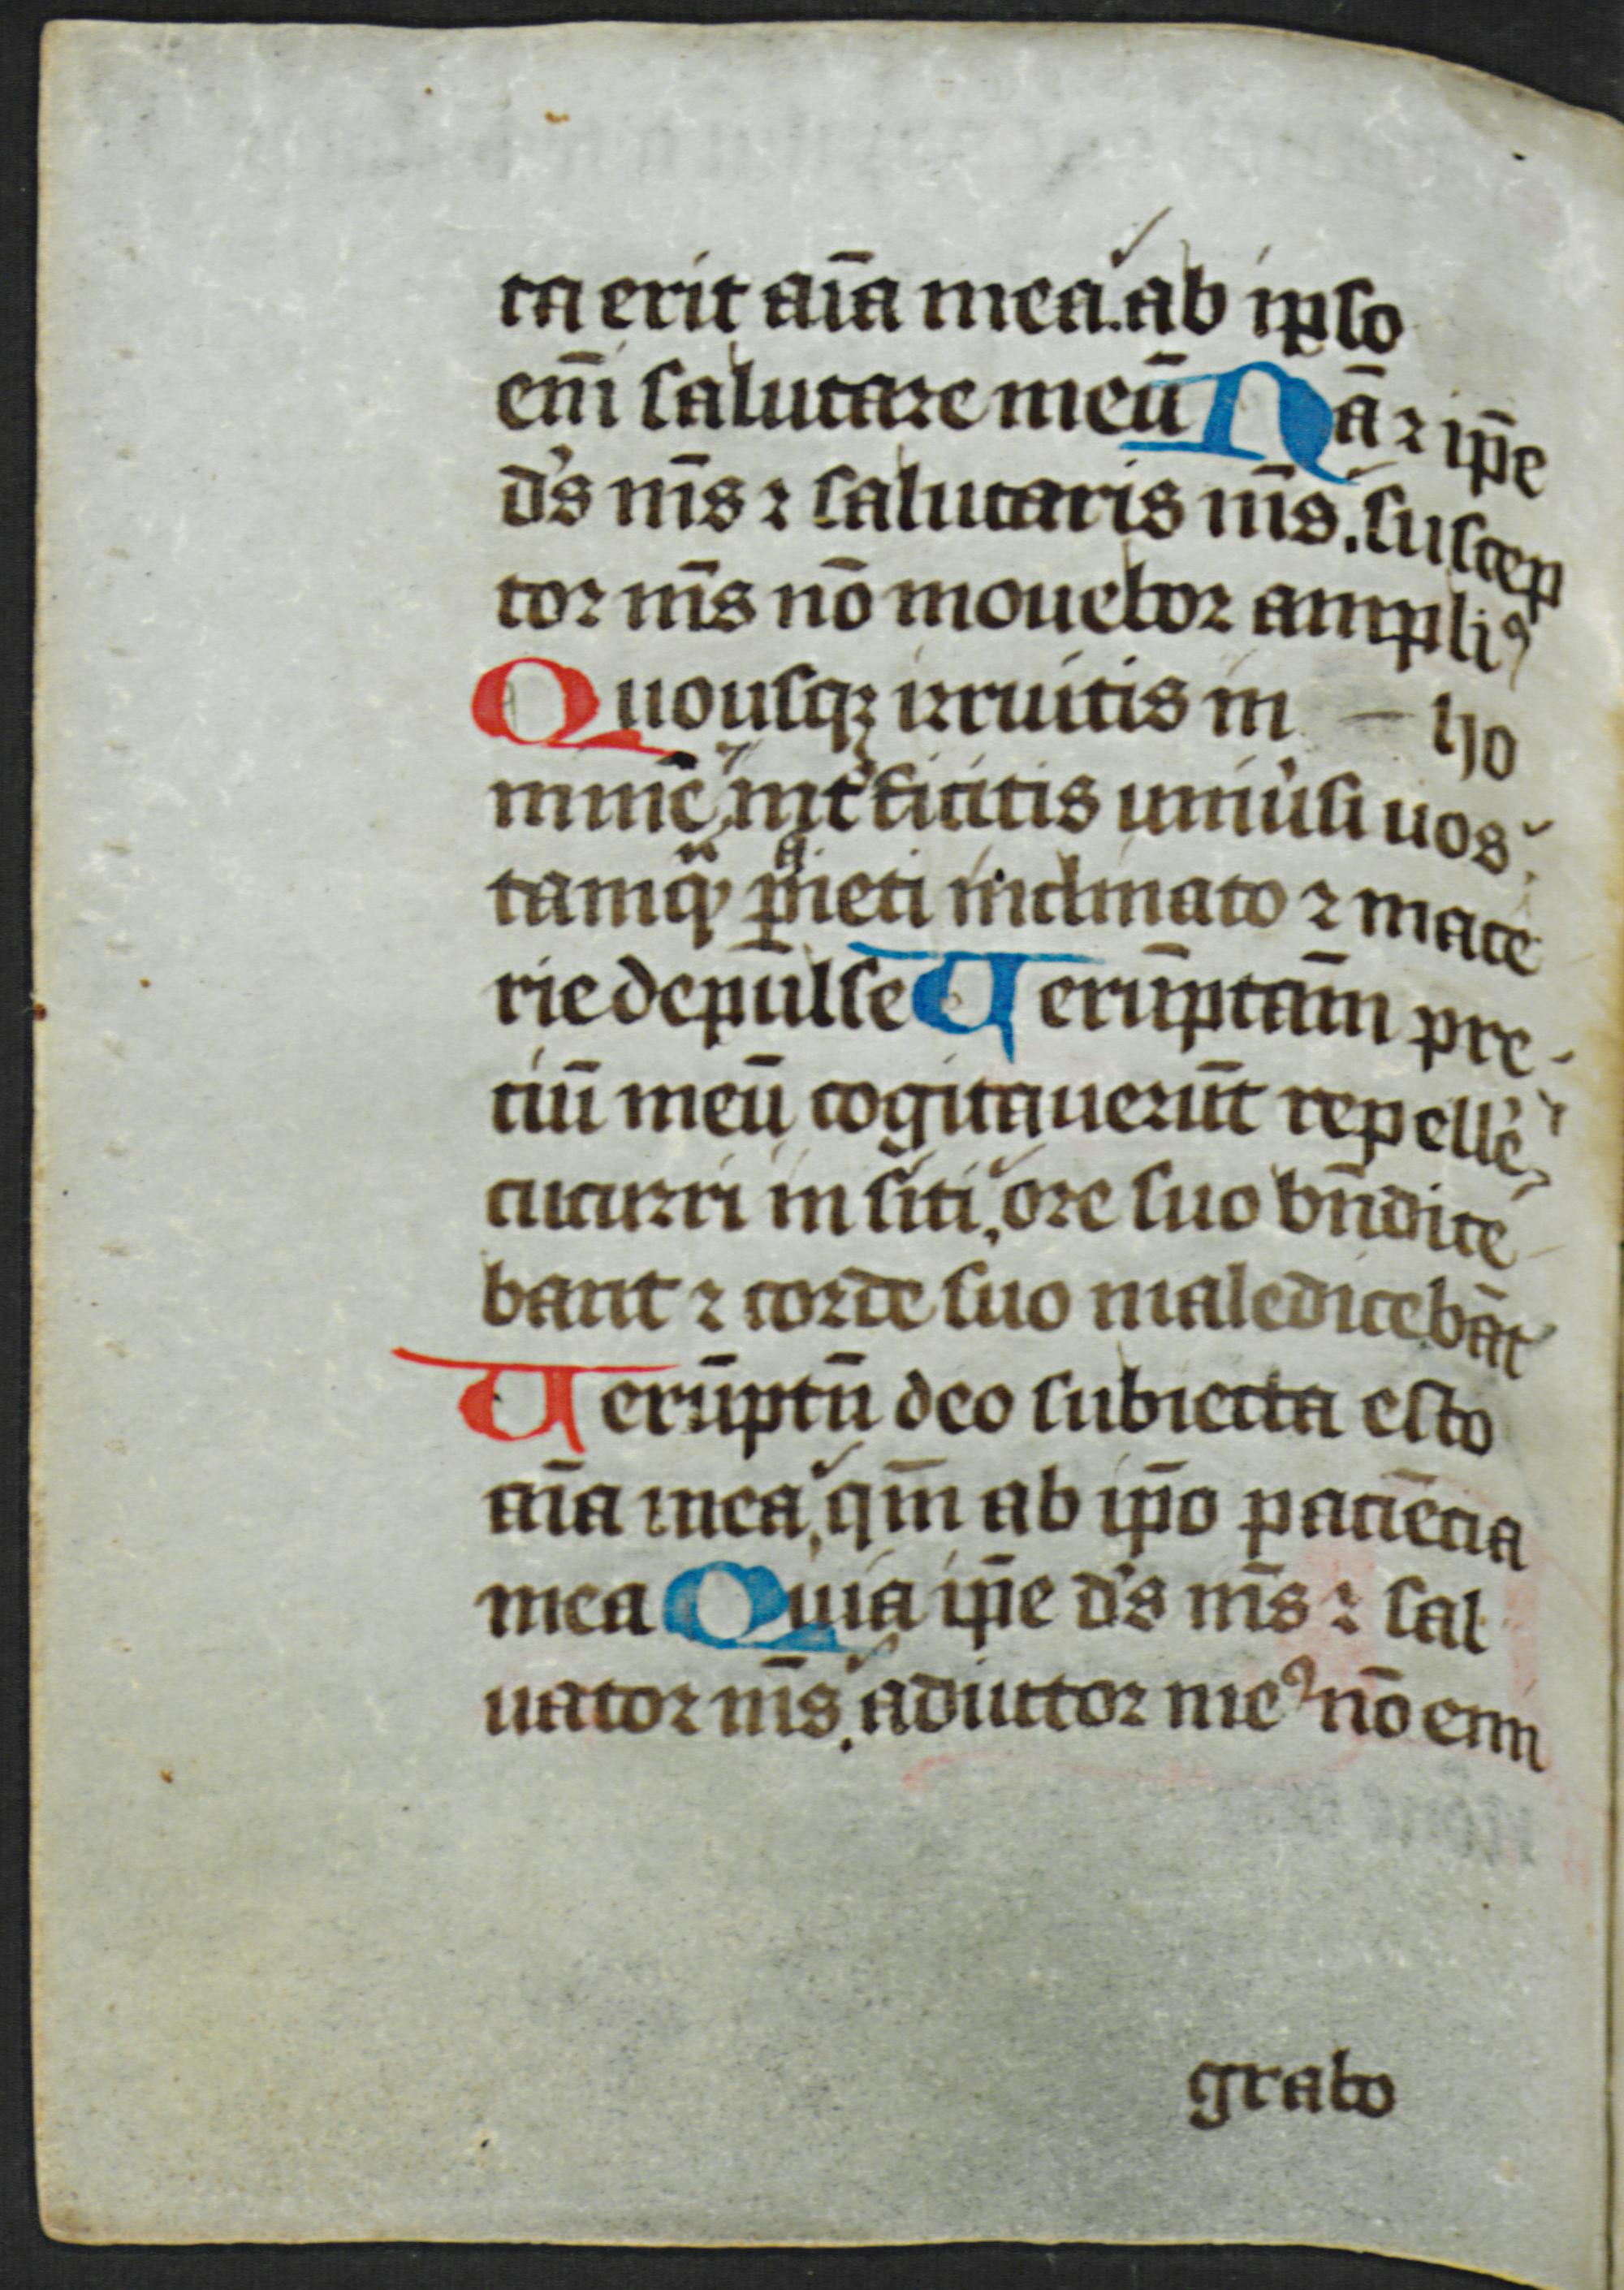 ta erit aīa mea. ab ipso
em̄ salutare meū Nā ⁊ ip̄e
d's m̄s ⁊ salutaris m̄s. suscep
tor m̄s nō mouebor ampliꝰ
Quousqꝫ irruitis in ho
minē int'ficitis uniu'si uos
tamqͣ pͣieti inclinato ⁊ mace
rie depūlse Uerūptam̄ pre
ciū meū cogitauerūt repell'e
cucurri in siti, ore suo bn̄dice
bant ⁊ corde suo maledicebāt
Uerūptū deo subiecta esto
aīa mea, qm̄ ab ip̄o paciēcia
mea Quia ip̄e d's m̄s ⁊ sal
uator m̄s. adiutor meꝰ nō emi
grabo